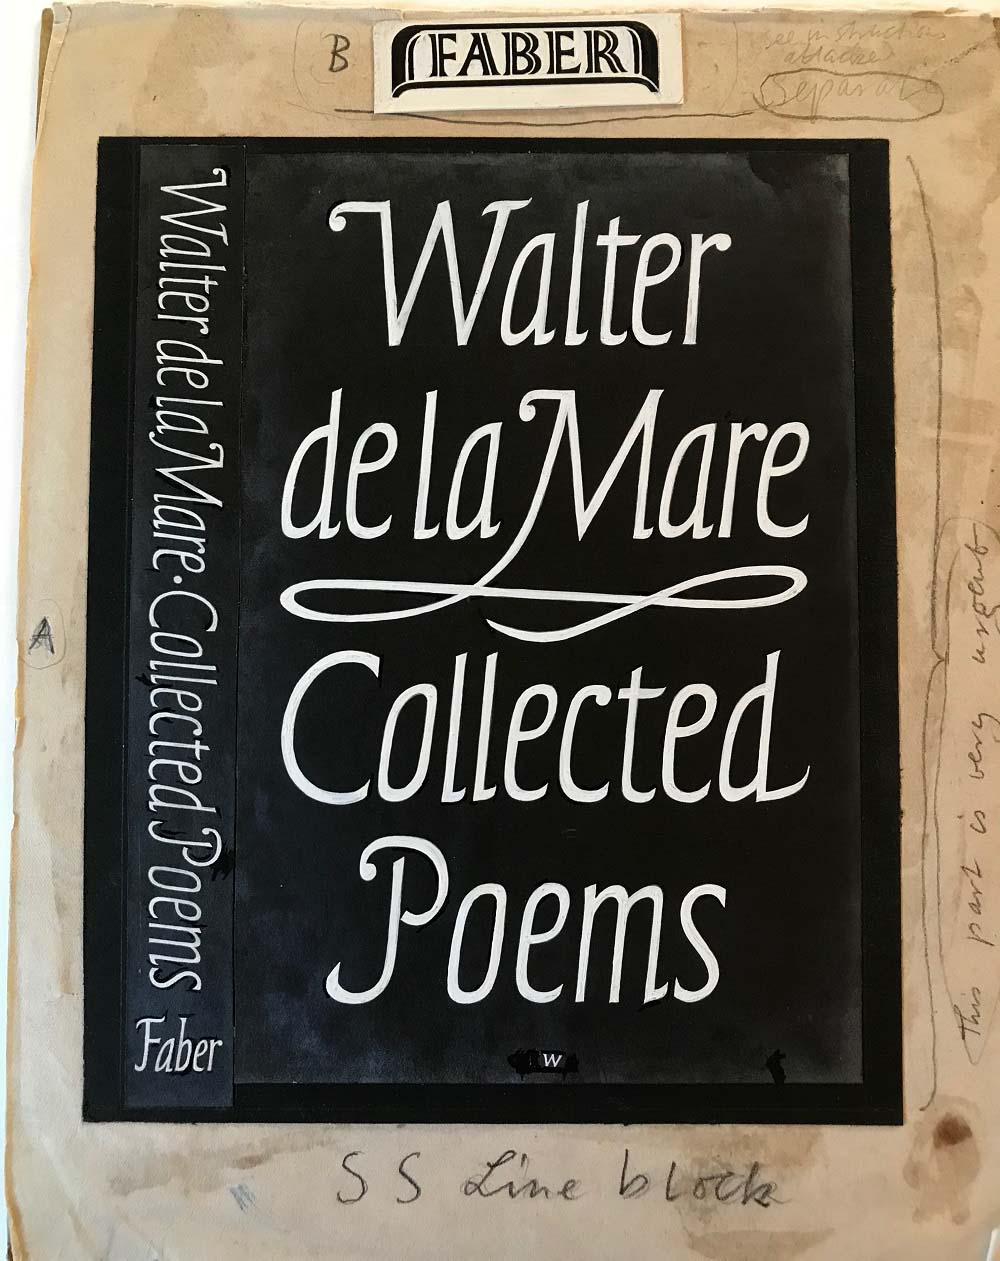 B
FABER
see instructions
attached
Separate
Walter de la Mare · Collected Poems
Faber
Walter
de la Mare
Collected
Poems
W
A
This part is very urgent
S S Line block